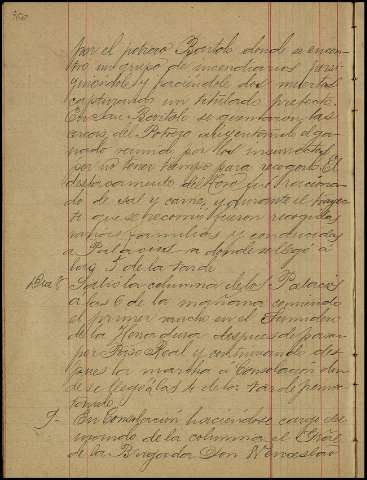 360
por el potrero Bartolo donde se encon-
tro un grupo de incendiarios persi-
guiendoles y haciendole dos muertos
capturando un titulado prefecto.
En San Bartolo se quemaron las
cercas del Potrero ahuyentando el ga-
nado reunido por los insurrectos
por no tener tiempo para recogerlo. El
destacamento del fue raciona-
do de sal y carne, y durante el trayec-
to que se recorrio fueron recogidas
varias familias y conducidas
a Palacios a donde se llegó á
las 5 de la tarde
Dia 8 Salio la columna de los Palacios
a las 6 de la mañana comiendo
el primer rancho en el
de la Herradura despues de pasar
por Paso Real y continuando des-
pues la marcha a Consolación don-
de se llegó á las 4 de la tarde perno-
tando
9- En Consolación haciendose cargo del
mando de la columna el Gral
de la Brigada Don Wenceslao